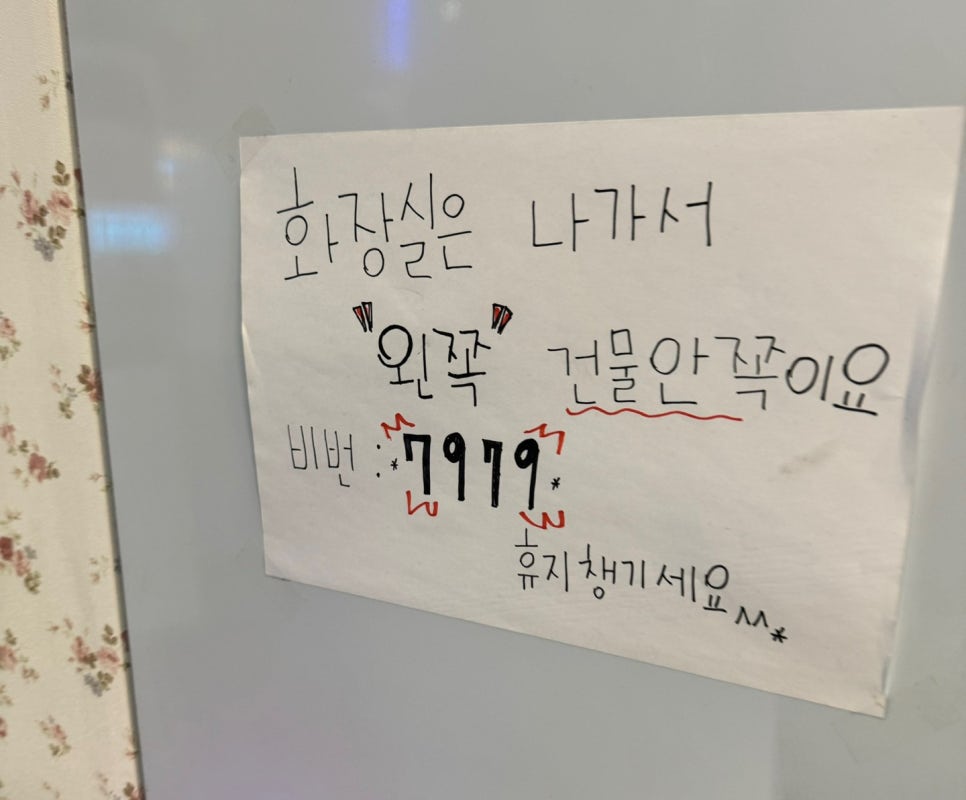 화장실은 나가서
"왼쪽" 건물안쪽이요
비번 : *7979*
휴지챙기세요^^*